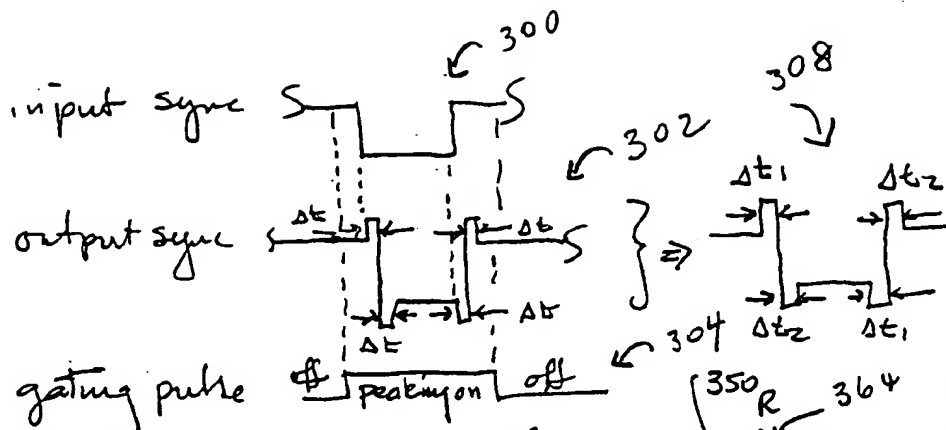 300
input sync
308
302
Δt1 Δt2
output sync Δt Δt
⇒
Δt Δt
Δt2 Δt1
304
gating pulse off peaking on off
350
R
364